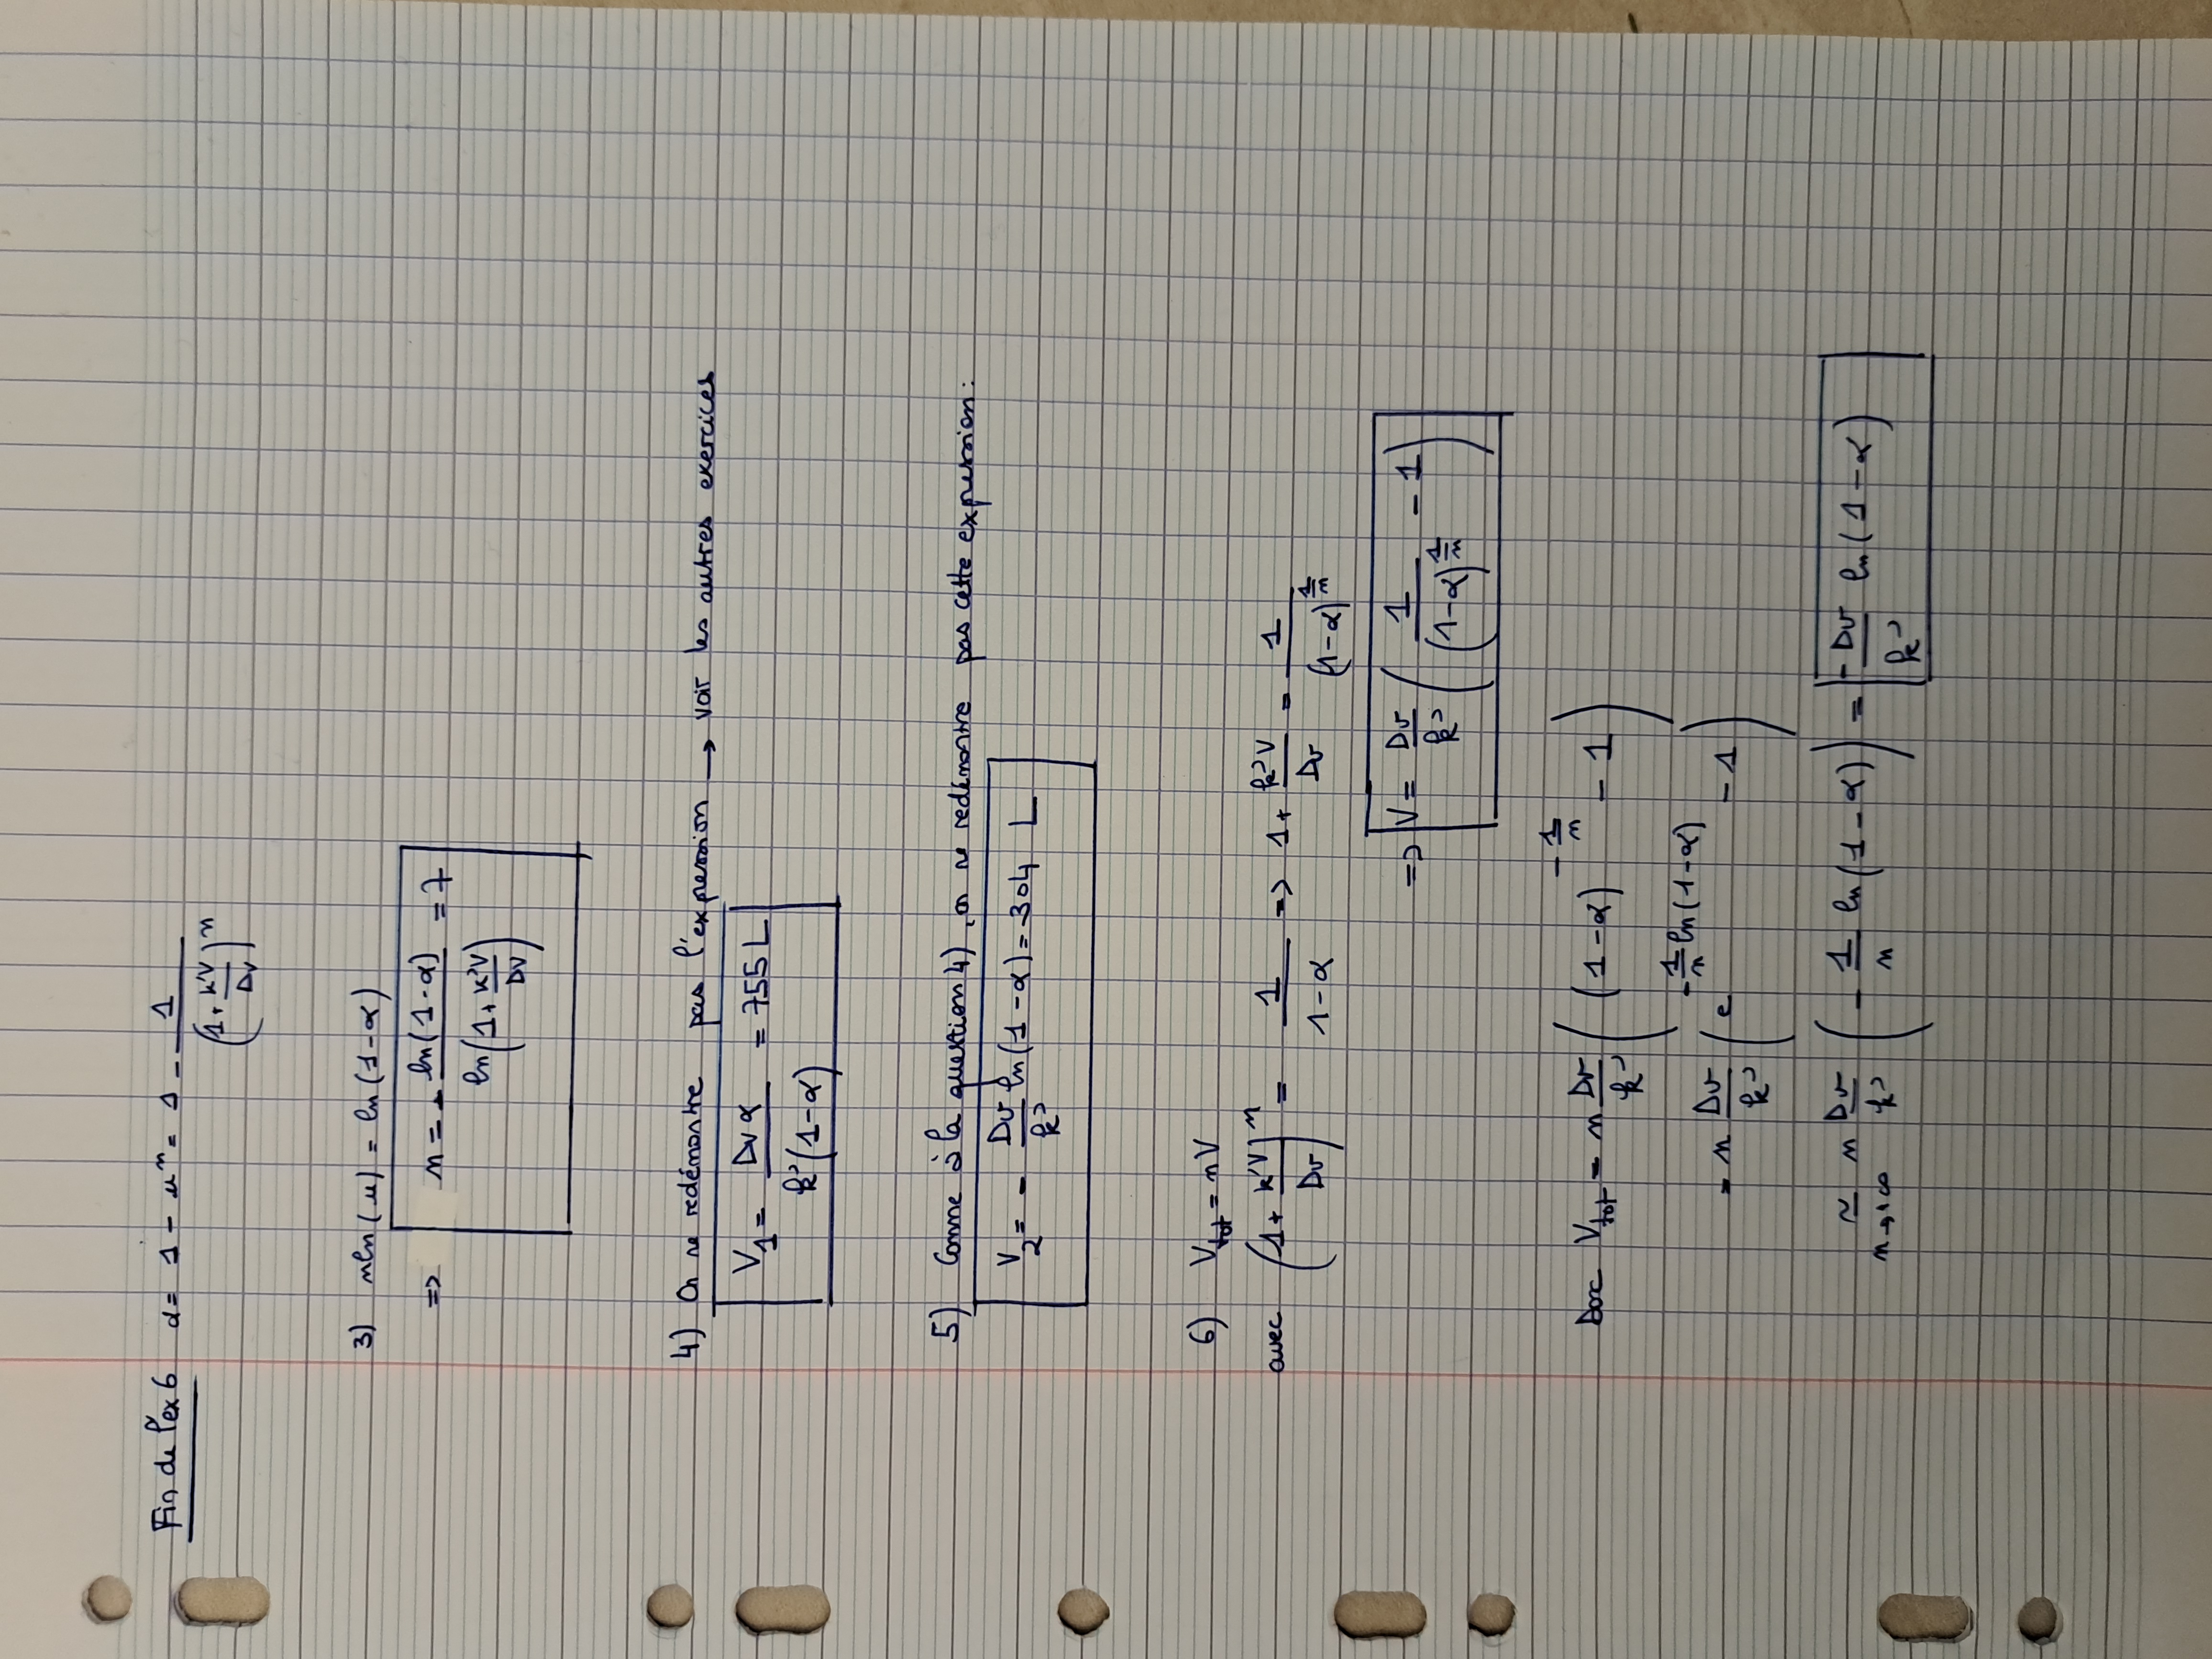 Fin de l'ex 6 α = 1 - uⁿ = 1 - 1/(1 + k'V/Dv)ⁿ
3) nln(u) = ln(1-α)
=> n = - ln(1-α)/ln(1 + k'V/Dv) = 7
4) On ne redémontre pas l'expression → voir les autres exercices
V₁ = Dvα/k'(1-α) = 755 L
5) Comme à la question 4), on ne redémontre pas cette expression :
V₂ = - Dv/k' ln(1-α) = 304 L
6) Vtot = nV
avec (1 + k'V/Dv)ⁿ = 1/(1-α) => 1 + k'V/Dv = 1/(1-α)^(1/n)
=> V = Dv/k' (1/(1-α)^(1/n) - 1)
Donc Vtot = n Dv/k' ((1-α)^(-1/n) - 1)
= n Dv/k' (e^(-1/n ln(1-α)) - 1)
≃ n→+∞ n Dv/k' (- 1/n ln(1-α)) = - Dv/k' ln(1-α)